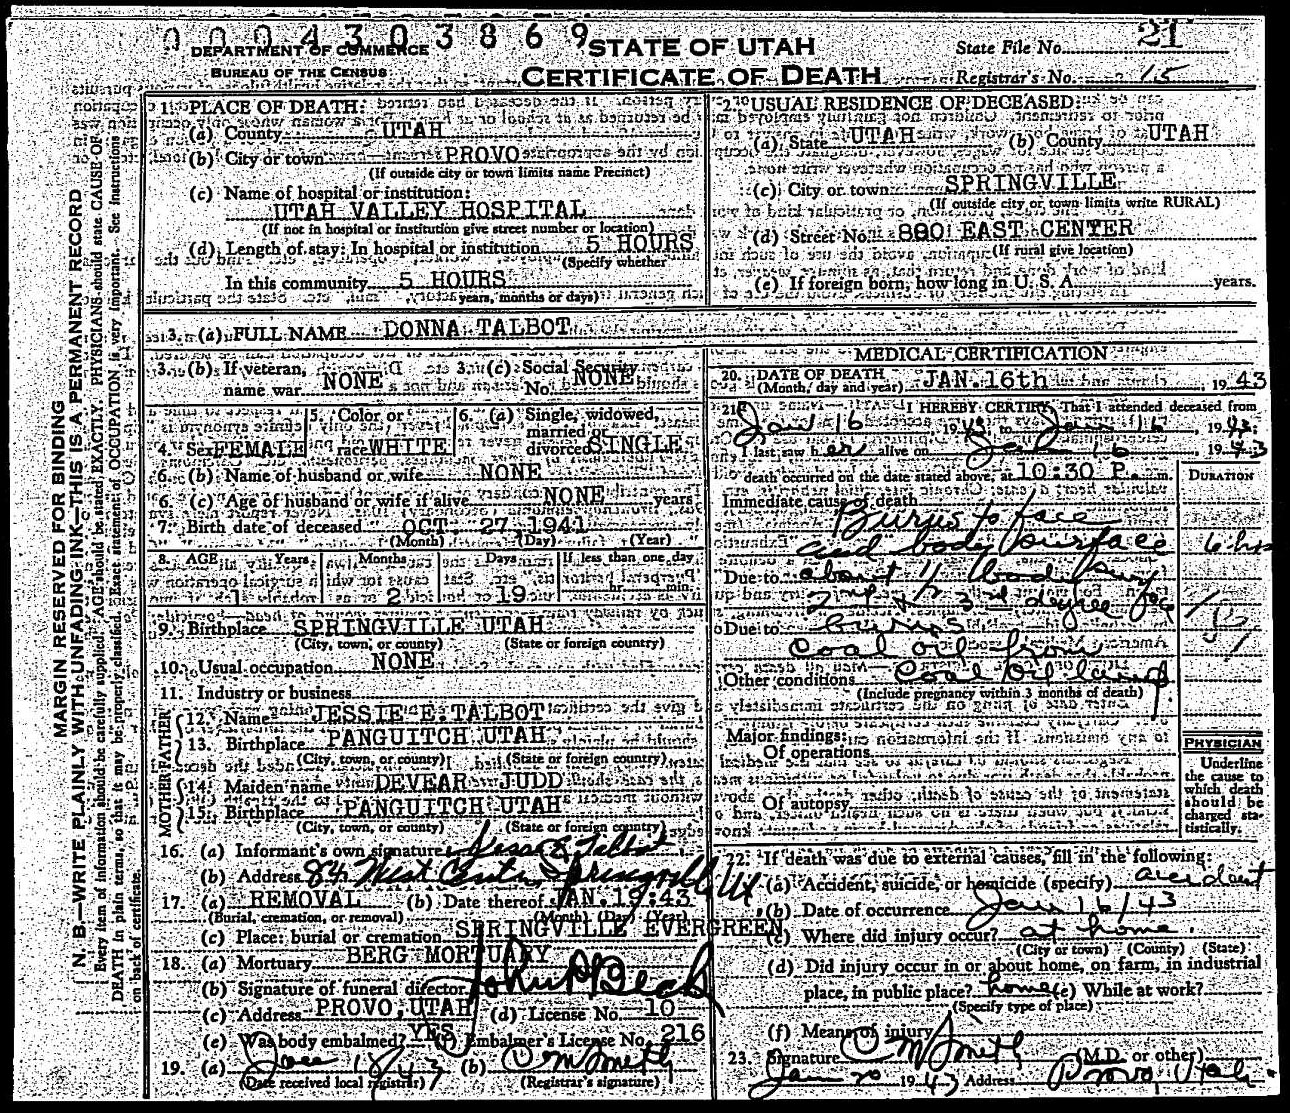 0004303869
DEPARTMENT OF COMMERCE
BUREAU OF THE CENSUS
STATE OF UTAH
CERTIFICATE OF DEATH
State File No. 21
Registrar's No. 15
MARGIN RESERVED FOR BINDING
N. B.—WRITE PLAINLY WITH UNFADING INK—THIS IS A PERMANENT RECORD
Every item of information should be carefully supplied. AGE should be stated EXACTLY. PHYSICIANS should state CAUSE OF
DEATH in plain terms, so that it may be properly classified. Exact statement of OCCUPATION is very important. See Instructions
on back of certificate.
1. PLACE OF DEATH:
(a) County UTAH
(b) City or town PROVO
(If outside city or town limits name Precinct)
(c) Name of hospital or institution:
UTAH VALLEY HOSPITAL
(If not in hospital or institution give street number or location)
(d) Length of stay: In hospital or institution 5 HOURS
(Specify whether
In this community 5 HOURS
years, months or days)
2. USUAL RESIDENCE OF DECEASED:
(a) State UTAH (b) County UTAH
(c) City or town SPRINGVILLE
(If outside city or town limits write RURAL)
(d) Street No. 880 EAST CENTER
(If rural give location)
(e) If foreign born, how long in U. S. A. years.
3. (a) FULL NAME DONNA TALBOT
3. (b) If veteran, name war NONE
3. (c) Social Security No. NONE
4. Sex FEMALE
5. Color or race WHITE
6. (a) Single, widowed, married or divorced SINGLE
6. (b) Name of husband or wife NONE
6. (c) Age of husband or wife if alive NONE years
7. Birth date of deceased OCT. 27 1941
(Month) (Day) (Year)
8. AGE Years Months Days If less than one day
1 2 19 hr. min.
9. Birthplace SPRINGVILLE UTAH
(City, town, or county) (State or foreign country)
10. Usual occupation NONE
11. Industry or business
FATHER
12. Name JESSIE E. TALBOT
13. Birthplace PANGUITCH UTAH
(City, town, or county) (State or foreign country)
MOTHER
14. Maiden name DEVEAR JUDD
15. Birthplace PANGUITCH UTAH
(City, town, or county) (State or foreign country)
16. (a) Informant's own signature Jesse E Talbot
(b) Address West Center Springville Ut
17. (a) REMOVAL (b) Date thereof JAN. 19 43
(Burial, cremation, or removal) (Month) (Day) (Year)
(c) Place: burial or cremation SPRINGVILLE EVERGREEN
18. (a) Mortuary BERG MORTUARY
(b) Signature of funeral director
(c) Address PROVO, UTAH (d) License No. 10
(e) Was body embalmed? YES (f) Embalmer's License No. 216
19. (a) 18/43 (b) O M Smith
(Date received local registrar) (Registrar's signature)
MEDICAL CERTIFICATION
20. DATE OF DEATH
(Month, day and year) JAN. 16th, 1943
21. I HEREBY CERTIFY, That I attended deceased from
Jan 16 1943 to Jan 16, 1943.
I last saw her alive on Jan 16, 1943
death occurred on the date stated above, at 10:30 P. m.
DURATION
Immediate cause of death
Burns to face
and body surface 6 hrs
Due to about 1/2 body
2nd & 3rd degree
Due to burns
Coal oil from
Other conditions Coal oil lamp.
(Include pregnancy within 3 months of death)
Major findings:
Of operations
Of autopsy
PHYSICIAN
Underline
the cause to
which death
should be
charged sta-
tistically.
22. If death was due to external causes, fill in the following:
(a) Accident, suicide, or homicide (specify) accident
(b) Date of occurrence Jan 16/43
(c) Where did injury occur? at home.
(City or town) (County) (State)
(d) Did injury occur in or about home, on farm, in industrial
place, in public place? home (e) While at work?
(Specify type of place)
(f) Means of injury
23. Signature O M Smith (M.D. or other)
Jan 20 1943 Address Provo, Utah.